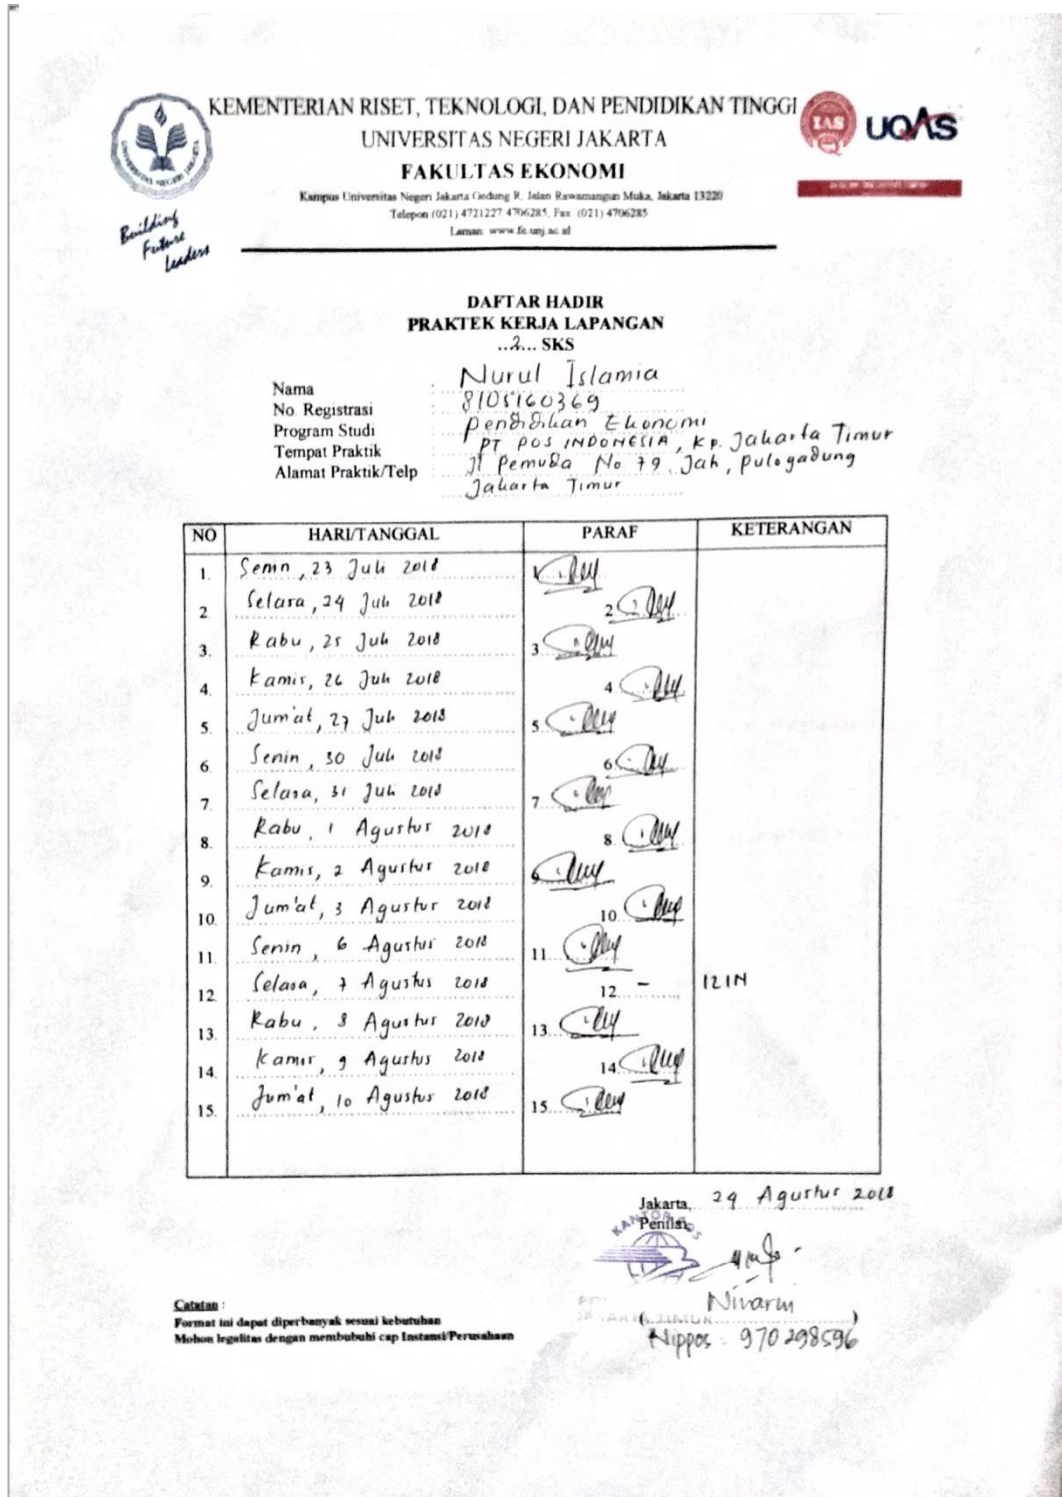 KEMENTERIAN RISET, TEKNOLOGI, DAN PENDIDIKAN TINGGI
UNIVERSITAS NEGERI JAKARTA
FAKULTAS EKONOMI
Kampus Universitas Negeri Jakarta Gedung R, Jalan Rawamangun Muka, Jakarta 13220
Telepon (021) 4721227 4706285, Fax (021) 4706285
Laman: www.fe.unj.ac.id
UNIVERSITAS NEGERI JAKARTA
Building
Future
Leaders
IAS
UQAS
DAFTAR HADIR
PRAKTEK KERJA LAPANGAN
..2... SKS
Nama : Nurul Islamia
No. Registrasi : 8105160369
Program Studi : Pendidikan Ekonomi
Tempat Praktik : PT POS INDONESIA, Kp. Jakarta Timur
Alamat Praktik/Telp : Jl Pemuda No 79 Jah, Pulogadung
Jakarta Timur
NO HARI/TANGGAL PARAF KETERANGAN
1. Senin, 23 Juli 2018
2. Selasa, 24 Juli 2018 2
3. Rabu, 25 Juli 2018 3
4. Kamis, 26 Juli 2018 4
5. Jum'at, 27 Juli 2018 5
6. Senin, 30 Juli 2018 6
7. Selasa, 31 Juli 2018 7
8. Rabu, 1 Agustus 2018 8
9. Kamis, 2 Agustus 2018 9
10. Jum'at, 3 Agustus 2018 10
11. Senin, 6 Agustus 2018 11
12. Selasa, 7 Agustus 2018 12 - IZIN
13. Rabu, 8 Agustus 2018 13
14. Kamis, 9 Agustus 2018 14
15. Jum'at, 10 Agustus 2018 15
Jakarta, 29 Agustus 2018
Penilai,
KANTOR POS
JAKARTA TIMUR
(Nivarin)
Nippos : 970298596
Catatan :
Format ini dapat diperbanyak sesuai kebutuhan
Mohon legalitas dengan membubuhi cap Instansi/Perusahaan